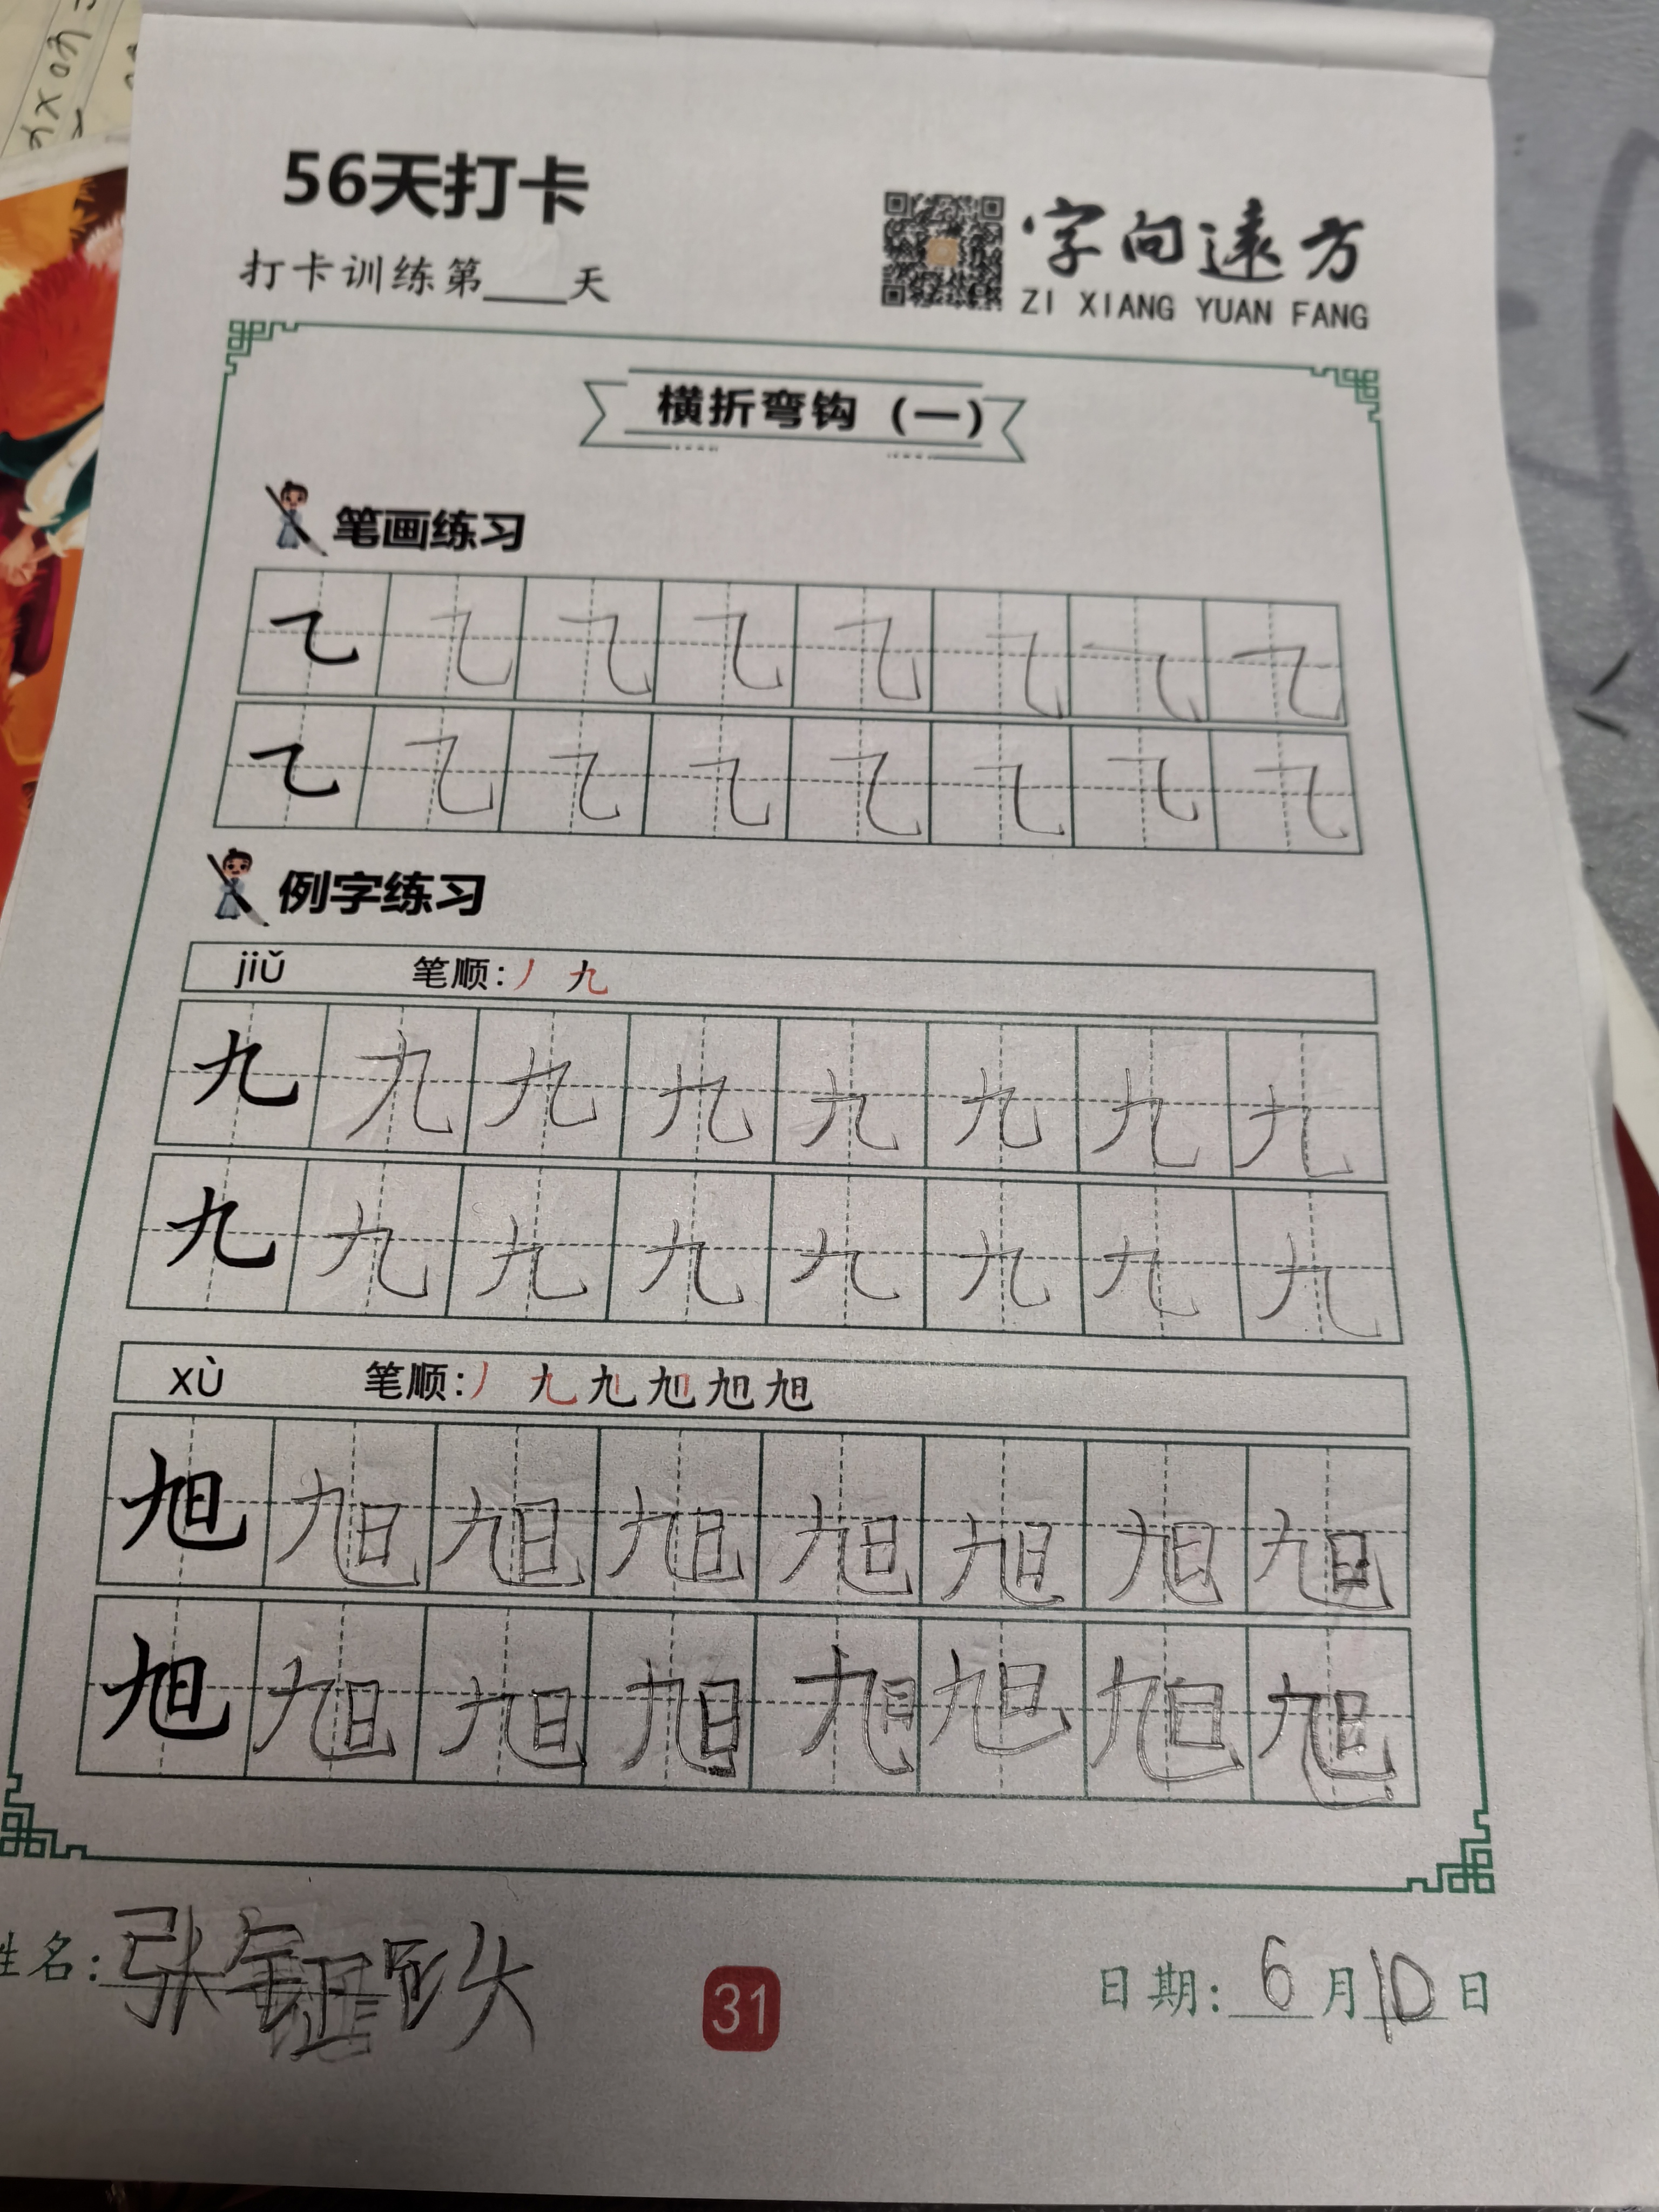 56天打卡
打卡训练第____天
字向遠方
ZI XIANG YUAN FANG
横折弯钩（一）
笔画练习
㇈ ㇈ ㇈ ㇈ ㇈ ㇈ ㇈ ㇈
㇈ ㇈ ㇈ ㇈ ㇈ ㇈ ㇈ ㇈
例字练习
jiǔ 笔顺：丿 九
九 九 九 九 九 九 九 九
九 九 九 九 九 九 九 九
xù 笔顺：丿 九 旭 旭
旭 旭 旭 旭 旭 旭 旭 旭
旭 旭 旭 旭 旭 旭 旭 旭
姓名：张
31
日期：6月10日